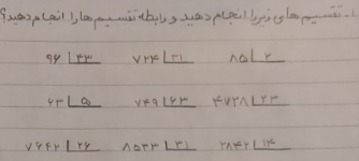 ۱- تقسیم های زیر را انجام دهید و رابطه تقسیم ها را انجام دهید؟
۹۶ | ۴۳ ۷۲۴ | ۳۱ ۸۵ | ۲
۶۳ | ۵ ۷۴۹ | ۶۳ ۴۷۳۸ | ۲۳
۷۶۴۲ | ۲۶ ۸۵۳۳ | ۳۱ ۲۸۴۲ | ۱۴